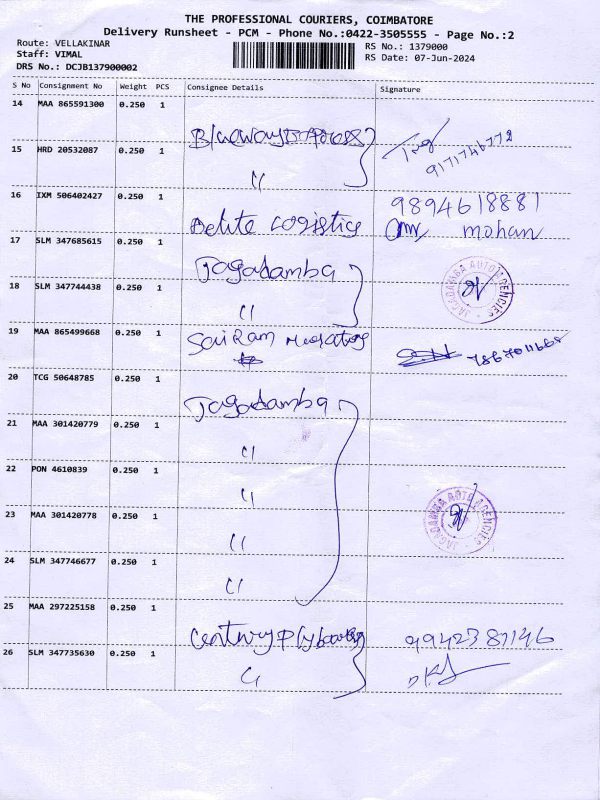 THE PROFESSIONAL COURIERS, COIMBATORE
Delivery Runsheet - PCM - Phone No.:0422-3505555 - Page No.:2
Route: VELLAKINAR
Staff: VIMAL
DRS No.: DCJB137900002
RS No.: 1379000
RS Date: 07-Jun-2024
S No Consignment No Weight PCS Consignee Details Signature
14 MAA 865591300 0.250 1
15 HRD 20532087 0.250 1 "
9171746772
16 IXM 506402427 0.250 1 Delite Logistics
9894618881
mohan
17 SLM 347685615 0.250 1 Jagadamba
JAGADAMBA AUTO AGENCIES
18 SLM 347744438 0.250 1 "
19 MAA 865499668 0.250 1 Sai Ram
20 TCG 50648785 0.250 1 Jagadamba
21 MAA 301420779 0.250 1 "
22 PON 4610839 0.250 1 "
23 MAA 301420778 0.250 1 "
JAGADAMBA AUTO AGENCIES
24 SLM 347746677 0.250 1 "
25 MAA 297225158 0.250 1 Century Plyboards
26 SLM 347735630 0.250 1 "